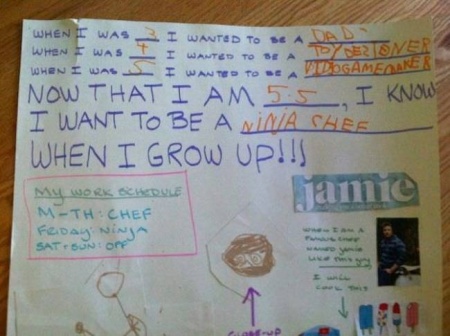 WHEN I WAS 3 I WANTED TO BE A DAD
WHEN I WAS 4 I WANTED TO BE A TOY DEZIGNER
WHEN I WAS 5 I WANTED TO BE A VIDOGAMEMAKER
NOW THAT I AM 5.5, I KNOW
I WANT TO BE A NINJA CHEF
WHEN I GROW UP!!!
MY WORK SCHEDULE
M-TH: CHEF
FRIDAY: NINJA
SAT+SUN: OFF
jamie
WHEN I AM A
FAMOUS CHEF
NAMED JAMIE
LIKE THIS guy
I WILL
COOK THIS
CLOSE-UP